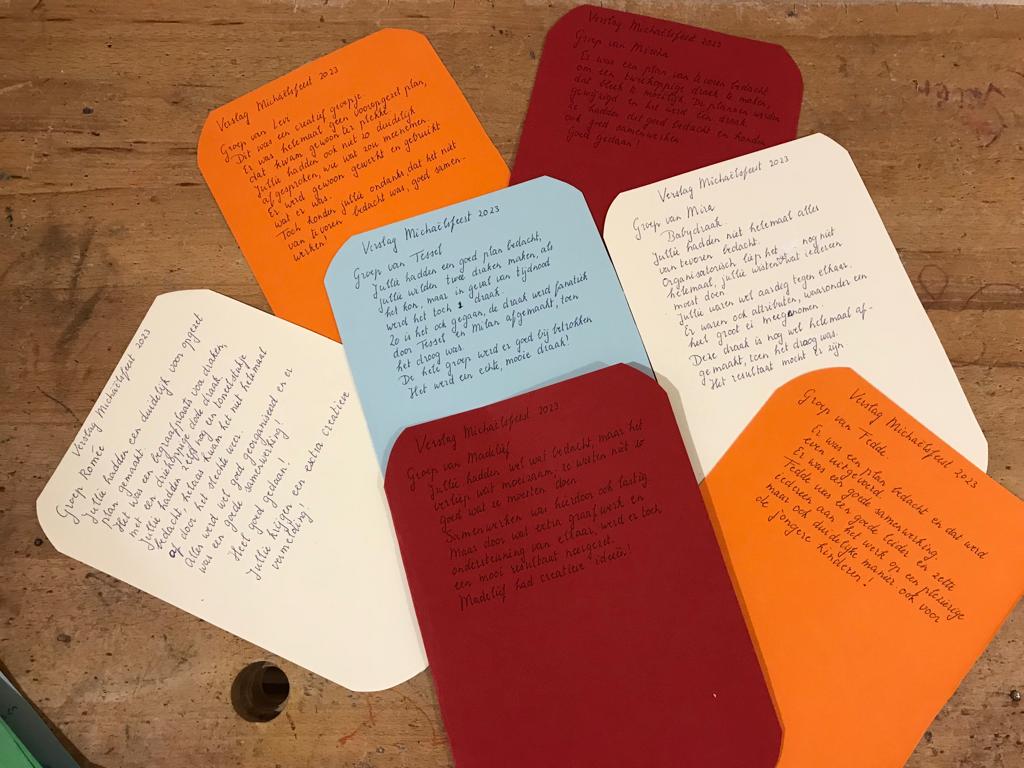 Verslag Michaëlsfeest 2023
Groep van Levi
Dit was een creatief groepje.
Er was helemaal geen vooropgezet plan,
dat kwam gewoon ter plekke.
Jullie hadden ook niet zo duidelijk
afgesproken, wie wat zou meenemen.
Er werd gewoon gewerkt en gebruikt
wat er was.
Toch konden jullie ondanks dat het niet
van te voren bedacht was, goed samen-
werken!
Verslag Michaëlsfeest 2023
Groep van Mischa
Er was een plan van te voren bedacht
om een tweekoppige draak te maken,
dat bleek te moeilijk. De plannen werden
gewijzigd en het werd één draak
Ze hadden dit goed bedacht en konden
ook goed samenwerken
Goed gedaan!
Verslag Michaëlsfeest 2023
Groep van Tessel
Jullie hadden een goed plan bedacht,
jullie wilden twee draken maken, als
het kon, maar in geval van tijdnood
werd het toch 1 draak.
Zo is het ook gegaan, de draak werd fanatiek
door Tessel en Milan afgemaakt, toen
het droog was.
De hele groep werd er goed bij betrokken
Het werd een echte, mooie draak!
Verslag Michaëlsfeest 2023
Groep van Mira
Babydraak
Jullie hadden niet helemaal alles
van tevoren bedacht.
Organisatorisch liep het nog niet
helemaal, jullie wisten wat iedereen
moest doen
Jullie waren wel aardig tegen elkaar.
Er waren ook attributen, waaronder een
heel groot ei meegenomen.
Deze draak is nog wel helemaal af-
gemaakt, toen het droog was.
Het resultaat mocht er zijn
Verslag Michaëlsfeest 2023
Groep Renée
Jullie hadden een duidelijk vooropgezet
plan gemaakt
Het was een begraafplaats voor draken,
met een driekoppige dode draak
Jullie hadden zelf nog een toneelstukje
bedacht, helaas kwam het niet helemaal
af door het slechte weer.
Alles werd wel goed georganiseerd en er
was een goede samenwerking!
Heel goed gedaan!
Jullie krijgen een extra creatieve
vermelding!
Verslag Michaëlsfeest 2023
Groep van Madelief
Jullie hadden wel wat bedacht, maar het
verliep wat moeizaam, ze wisten niet zo
goed wat ze moesten doen
Samenwerken was hierdoor ook lastig.
Maar door wat extra graafwerk en
ondersteuning van elkaar, werd er toch
een mooi resultaat neergezet.
Madelief had creatieve ideeën!
Verslag Michaëlsfeest 2023
Groep van Tedde
Er was een plan bedacht en dat werd
even uitgevoerd.
Er was een goede samenwerking
Tedde was een goede leider en zette
iedereen aan het werk op een plezierige
maar ook duidelijke manier ook voor
de jongere kinderen!